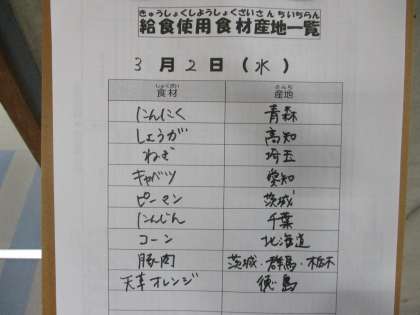 きゅうしょくしようしょくざいさんちいちらん
給食使用食材産地一覧
3月2日(水)
しょくざい さんち
食材 産地
にんにく 青森
しょうが 高知
ねぎ 埼玉
キャベツ 愛知
ピーマン 茨城
にんじん 千葉
コーン 北海道
豚肉 茨城・群馬・栃木
天草オレンジ 徳島